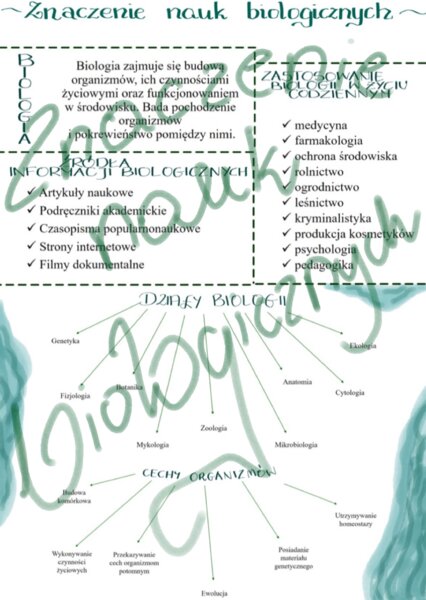 ~Znaczenie nauk biologicznych~
BIOLOGIA
Biologia zajmuje się budową
organizmów, ich czynnościami
życiowymi oraz funkcjonowaniem
w środowisku. Bada pochodzenie
organizmów
i pokrewieństwo pomiędzy nimi.
ZASTOSOWANIE
BIOLOGII W ŻYCIU
CODZIENNYM
✓ medycyna
✓ farmakologia
✓ ochrona środowiska
✓ rolnictwo
✓ ogrodnictwo
✓ leśnictwo
✓ kryminalistyka
✓ produkcja kosmetyków
✓ psychologia
✓ pedagogika
ŹRÓDŁA
INFORMACJI BIOLOGICZNYCH
✓ Artykuły naukowe
✓ Podręczniki akademickie
✓ Czasopisma popularnonaukowe
✓ Strony internetowe
✓ Filmy dokumentalne
Znaczenie
nauk
biologicznych
DZIAŁY BIOLOGII
Genetyka
Ekologia
Fizjologia
Botanika
Anatomia
Cytologia
Zoologia
Mykologia
Mikrobiologia
CECHY ORGANIZMÓW
Budowa
komórkowa
Utrzymywanie
homeostazy
Wykonywanie
czynności
życiowych
Przekazywanie
cech organizmom
potomnym
Posiadanie
materiału
genetycznego
Ewolucja